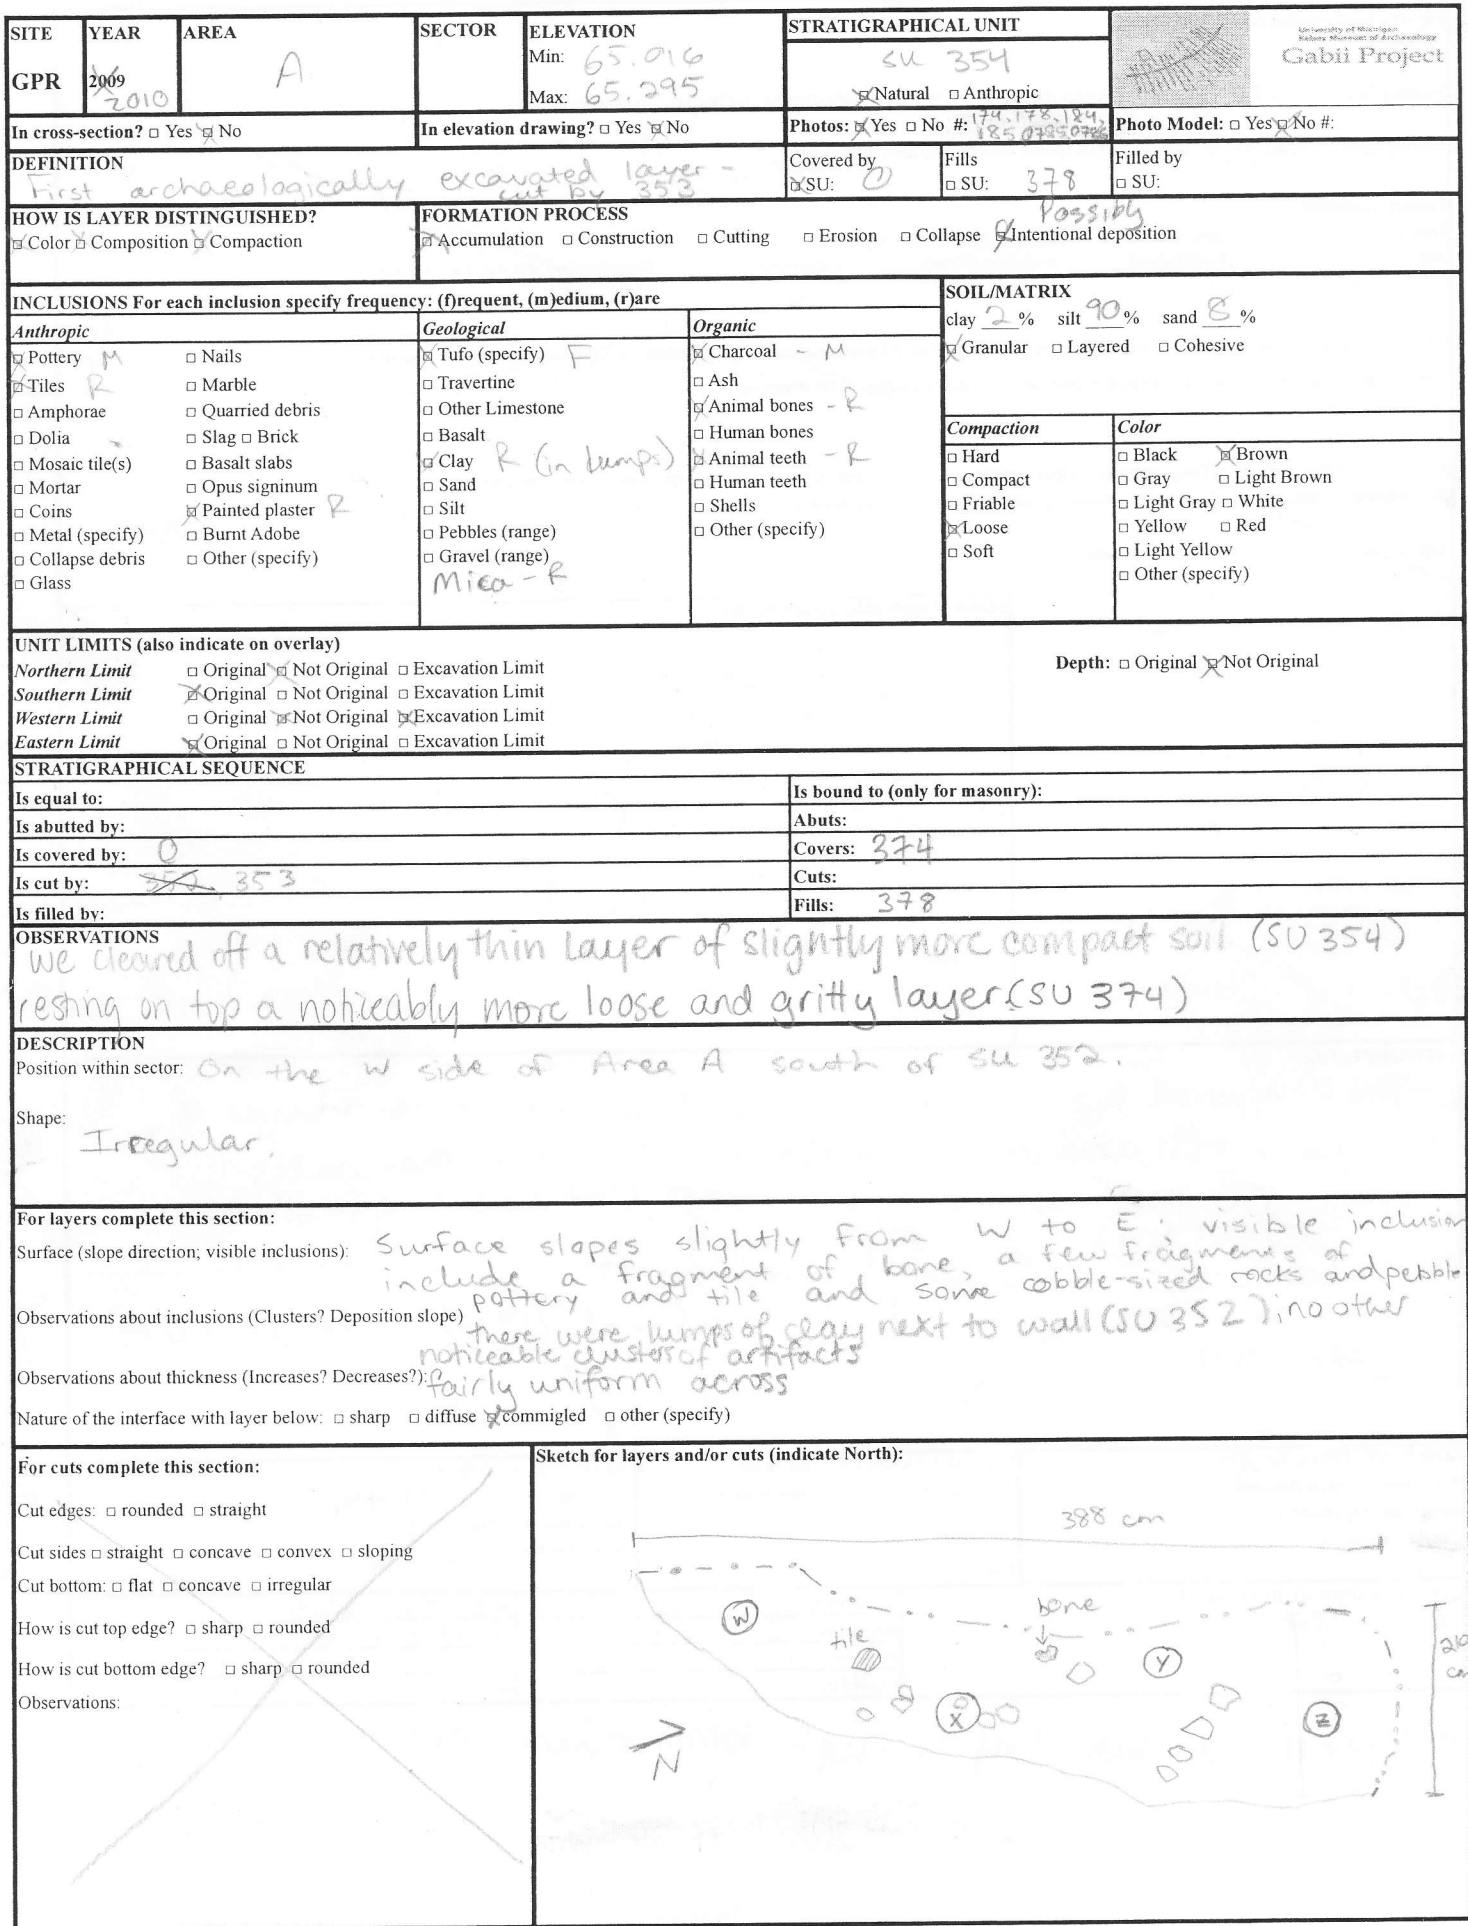 SITE YEAR AREA SECTOR ELEVATION STRATIGRAPHICAL UNIT
University of Michigan
Kelsey Museum of Archaeology
Gabii Project
GPR 2009 2010 A
Min: 65.016
Max: 65.295
SU 354
Natural Anthropic
In cross-section? Yes No
In elevation drawing? Yes No
Photos: Yes No #: 174, 178, 184,
Photo Model: Yes No #:
DEFINITION
First archaeologically excavated layer -
cut by 353
Covered by
SU: 0
Fills
SU: 378
Filled by
SU:
HOW IS LAYER DISTINGUISHED?
Color Composition Compaction
FORMATION PROCESS
Possibly
Accumulation Construction Cutting Erosion Collapse Intentional deposition
INCLUSIONS For each inclusion specify frequency: (f)requent, (m)edium, (r)are
Anthropic
Pottery M
Tiles R
Amphorae
Dolia
Mosaic tile(s)
Mortar
Coins
Metal (specify)
Collapse debris
Glass
Nails
Marble
Quarried debris
Slag Brick
Basalt slabs
Opus signinum
Painted plaster R
Burnt Adobe
Other (specify)
Geological
Tufo (specify) F
Travertine
Other Limestone
Basalt
Clay R (in lumps)
Sand
Silt
Pebbles (range)
Gravel (range)
Mica - R
Organic
Charcoal - M
Ash
Animal bones - R
Human bones
Animal teeth - R
Human teeth
Shells
Other (specify)
SOIL/MATRIX
clay 2 % silt 90 % sand 8 %
Granular Layered Cohesive
Compaction
Hard
Compact
Friable
Loose
Soft
Color
Black Brown
Gray Light Brown
Light Gray White
Yellow Red
Light Yellow
Other (specify)
UNIT LIMITS (also indicate on overlay)
Northern Limit Original Not Original Excavation Limit
Southern Limit Original Not Original Excavation Limit
Western Limit Original Not Original Excavation Limit
Eastern Limit Original Not Original Excavation Limit
Depth: Original Not Original
STRATIGRAPHICAL SEQUENCE
Is equal to: Is bound to (only for masonry):
Is abutted by: Abuts:
Is covered by: 0 Covers: 374
Is cut by: 352, 353 Cuts:
Is filled by: Fills: 378
OBSERVATIONS
we cleared off a relatively thin layer of slightly more compact soil (SU 354)
resting on top a noticeably more loose and gritty layer (SU 374)
DESCRIPTION
Position within sector: On the W side of Area A south of SU 352.
Shape:
Irregular.
For layers complete this section:
Surface (slope direction; visible inclusions): Surface slopes slightly from W to E; visible inclusion
include a fragment of bone, a few fragments of
pottery and tile and some cobble-sized rocks and pebble
Observations about inclusions (Clusters? Deposition slope)
there were lumps of clay next to wall (SU 352); no other
noticeable clusters of artifacts
Observations about thickness (Increases? Decreases?): fairly uniform across
Nature of the interface with layer below: sharp diffuse commigled other (specify)
For cuts complete this section:
Cut edges: rounded straight
Cut sides straight concave convex sloping
Cut bottom: flat concave irregular
How is cut top edge? sharp rounded
How is cut bottom edge? sharp rounded
Observations:
Sketch for layers and/or cuts (indicate North):
388 cm
W
tile
bone
Y
X
Z
N